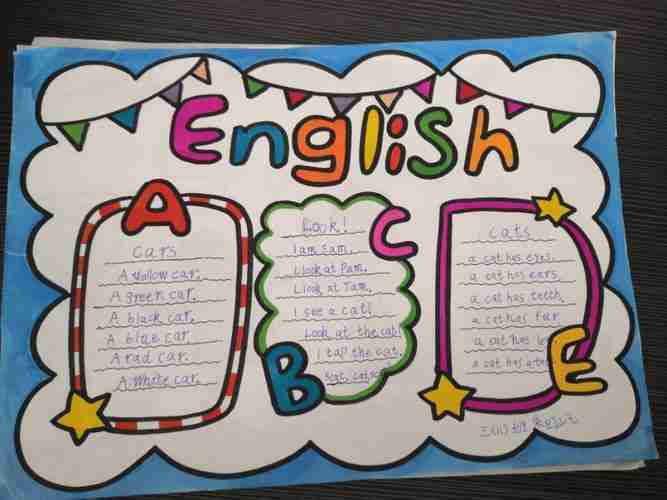 English
A
Cars
A Yallow car.
A green car.
A black car.
A blue car.
A rad car.
A White car.
B
C
Look!
I am Sam.
I look at Pam.
I look at Tam.
I see a cat!
Look at the cat!
I tap the cat.
D
cats
a cat has eyes.
a cat has ears.
a cat has teeth.
a cat has fur
a cat has
a cat has
E
三(1)班